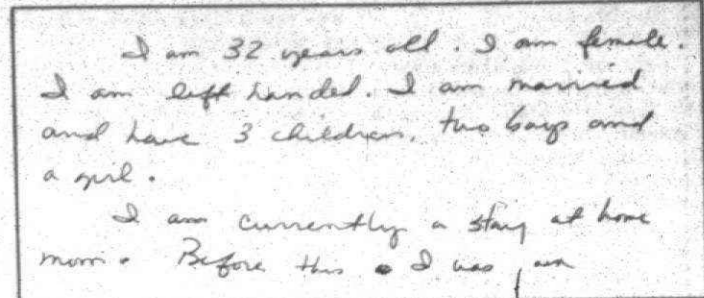 I am 32 years old. I am female.
I am left handed. I am married
and have 3 children, two boys and
a girl.
I am currently a stay at home
mom. Before this I was an